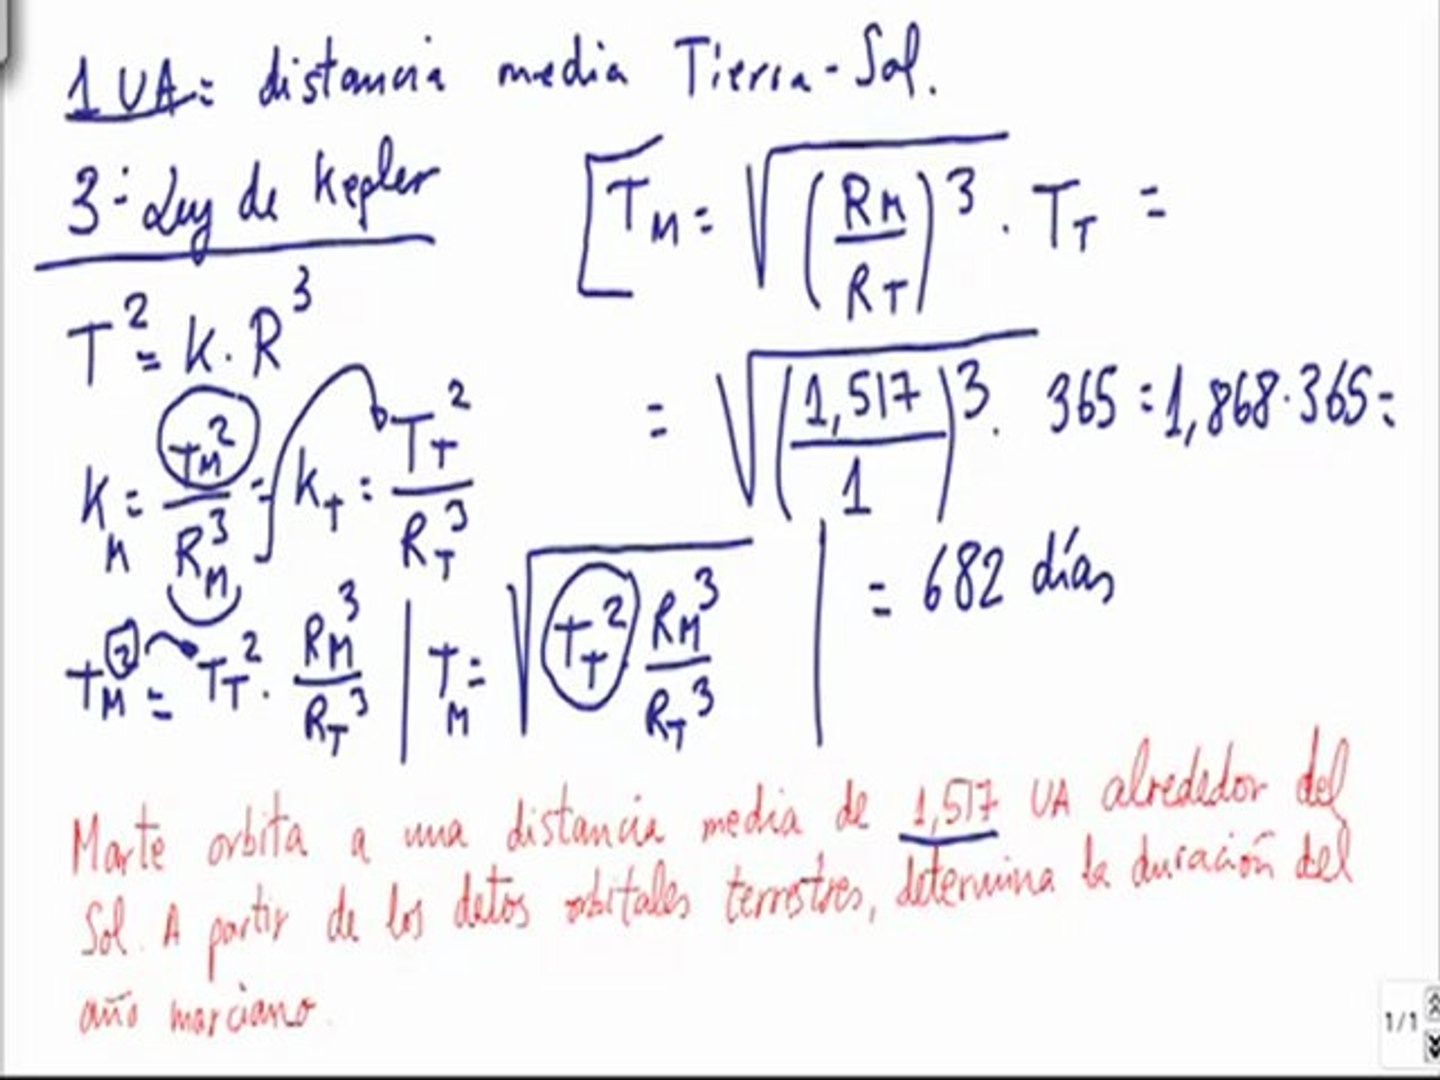 1 UA = distancia media Tierra-Sol.
3ª Ley de Kepler
T² = K · R³
K_M = T_M² / R_M³ = K_T = T_T² / R_T³
T_M² = T_T² · R_M³ / R_T³
T_M = √(T_T² · R_M³ / R_T³)
T_M = √((R_M / R_T)³) · T_T =
= √((1,517 / 1)³) · 365 = 1,868 · 365 =
= 682 días
Marte orbita a una distancia media de 1,517 UA alrededor del
Sol. A partir de los datos orbitales terrestres, determina la duración del
año marciano.
1/1